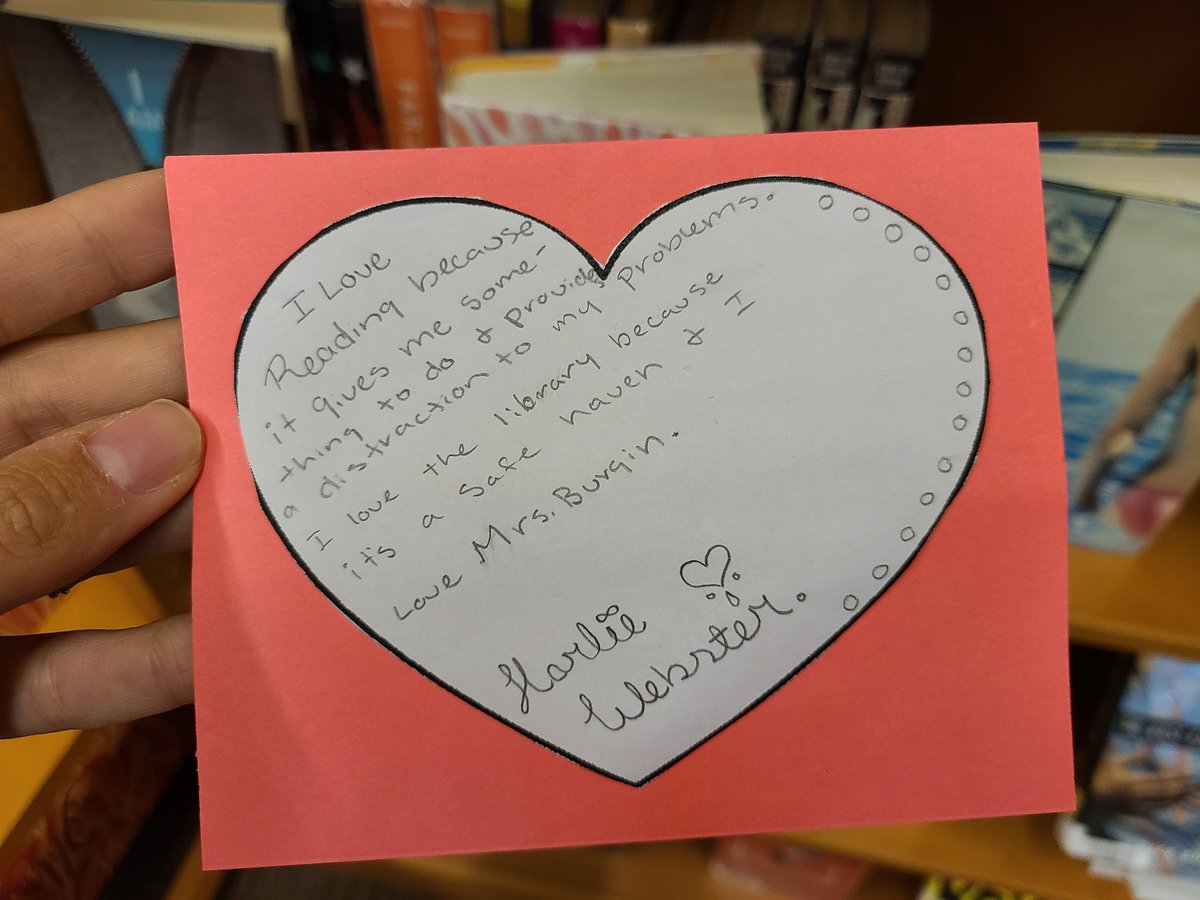 I Love
Reading because
it gives me some-
thing to do & provides
a distraction to my problems.
I love the library because
it's a safe haven & I
Love Mrs. Burgin.
Harlie
Webster.